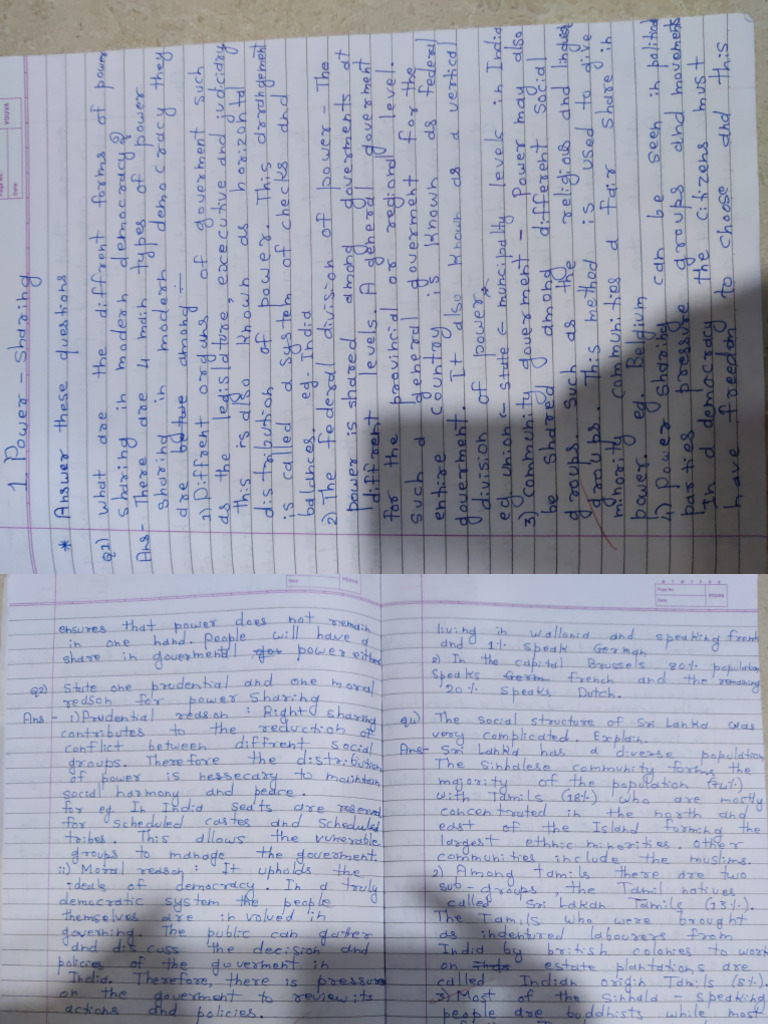 1. Power - sharing
* Answer these questions
Q1) What are the diffrent forms of power
sharing in modern democracy?
Ans- There are 4 main types of power
sharing in modern democracy they
are among :-
1) Diffrent organs of goverment such
as the legislature, executive and judiciary
this is also known as horizontal
distribution of power. This arrangement
is called a system of checks and
balances. eg. India
2) The federal division of power - The
power is shared among goverments at
diffrent levels. A general goverment
for the provincial or regional level.
such a general goverment for the
entire country is known as federal
goverment. It also known as a vertical
division of power
eg. union ← state ← muncipality levels in India
3) community goverment - Power may also
be shared among different social
groups. Such as the religious and
groups. This method is used to give
minority communities a fair share in
power. eg. Belgium
4) Power sharing can be seen in political
parties pressure groups and movements
In a democracy the citizens must
have freedom to choose and this
ensures that power does not remain
in one hand. People will have a
share in goverment power either
Q2) State one prudential and one moral
reason for power sharing
Ans- i) Prudential reason : Right sharing
contributes to the reduction of
conflict between diffrent social
groups. Therefore the distribution
of power is nessecary to maintain
social harmony and peace.
for eg In India seats are reserved
for scheduled castes and scheduled
tribes. This allows the vunerable
groups to manage the goverment.
ii) Moral reason : It upholds the
ideals of democracy. In a truly
democratic system the people
themselves are involved in
governing. The public can gather
and discuss the decision and
policies of the goverment in
India. Therefore, there is pressure
on the goverment to review its
actions and policies.
living in wallonia and speaking french
and 1% speak German
2) In the capital Brussels 80% population
speaks french and the remaining
20% speaks Dutch.
Q4) The social structure of Sri Lanka was
very complicated. Explain.
Ans- Sri Lanka has a diverse population
The Sinhalese community forms the
majority of the population (74%)
with Tamils (18%) who are mostly
concentrated in the north and
east of the Island forming the
largest ethnic minorities. other
communities include the muslims.
2) Among tamils there are two
sub-groups, the Tamil natives
called Sri Lakan Tamils (13%).
The Tamils who were brought
as indentured labourers from
India by british colonies to work
on estate plantations are
called Indian origin Tamils (5%).
3) Most of the Sinhala - speaking
people are buddhists while most